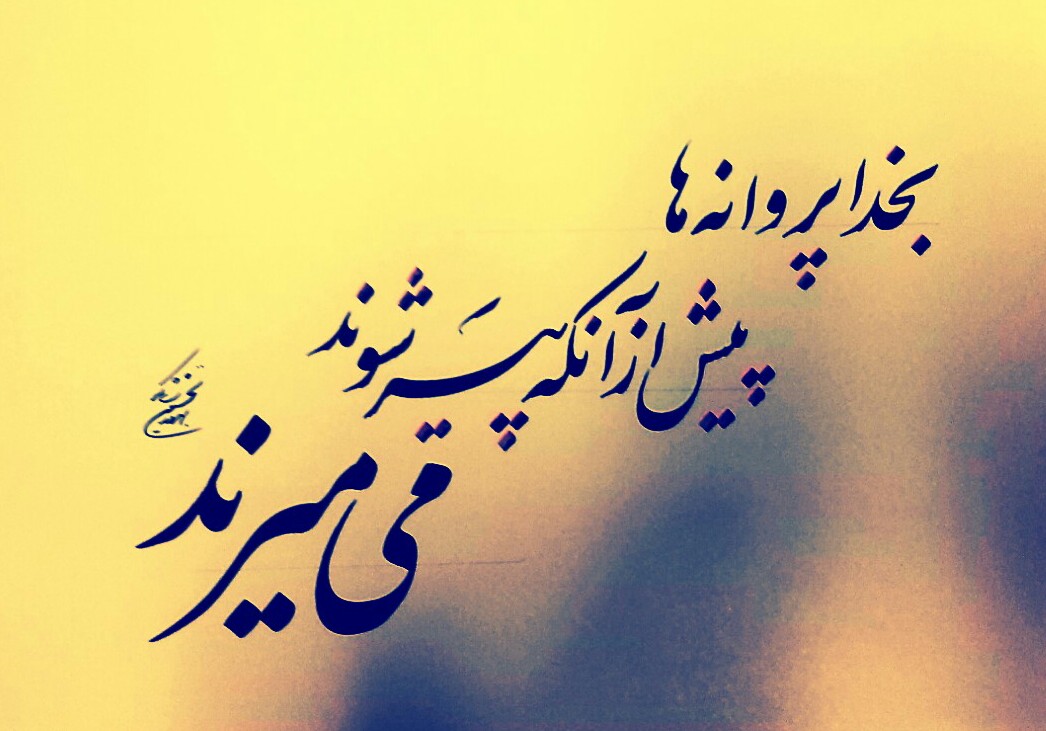 بخدا پروانه ها
پیش از آنکه پیر شوند
می میرند